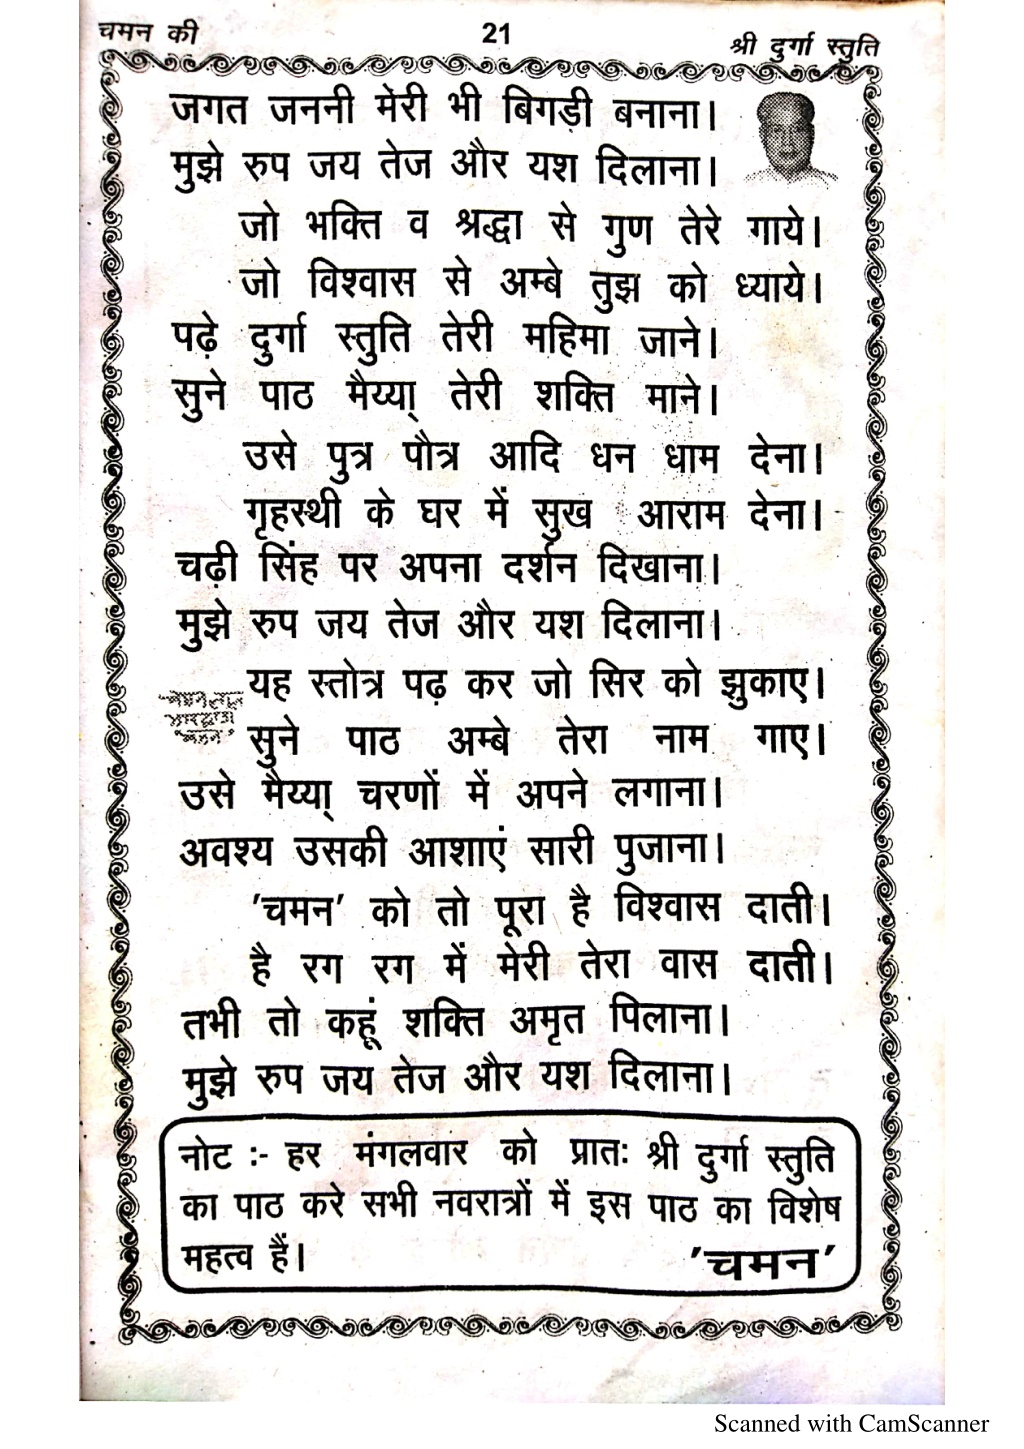 चमन की 21 श्री दुर्गा स्तुति
जगत जननी मेरी भी बिगड़ी बनाना।
मुझे रुप जय तेज और यश दिलाना।
जो भक्ति व श्रद्धा से गुण तेरे गाये।
जो विश्वास से अम्बे तुझ को ध्याये।
पढ़े दुर्गा स्तुति तेरी महिमा जाने।
सुने पाठ मैय्या् तेरी शक्ति माने।
उसे पुत्र पौत्र आदि धन धाम देना।
गृहस्थी के घर में सुख आराम देना।
चढ़ी सिंह पर अपना दर्शन दिखाना।
मुझे रुप जय तेज और यश दिलाना।
यह स्तोत्र पढ़ कर जो सिर को झुकाए।
सुने पाठ अम्बे तेरा नाम गाए।
उसे मैय्या् चरणों में अपने लगाना।
अवश्य उसकी आशाएं सारी पुजाना।
'चमन' को तो पूरा है विश्वास दाती।
है रग रग में मेरी तेरा वास दाती।
तभी तो कहूं शक्ति अमृत पिलाना।
मुझे रुप जय तेज और यश दिलाना।
नोट :- हर मंगलवार को प्रातः श्री दुर्गा स्तुति
का पाठ करे सभी नवरात्रों में इस पाठ का विशेष
महत्व हैं। 'चमन'
Scanned with CamScanner